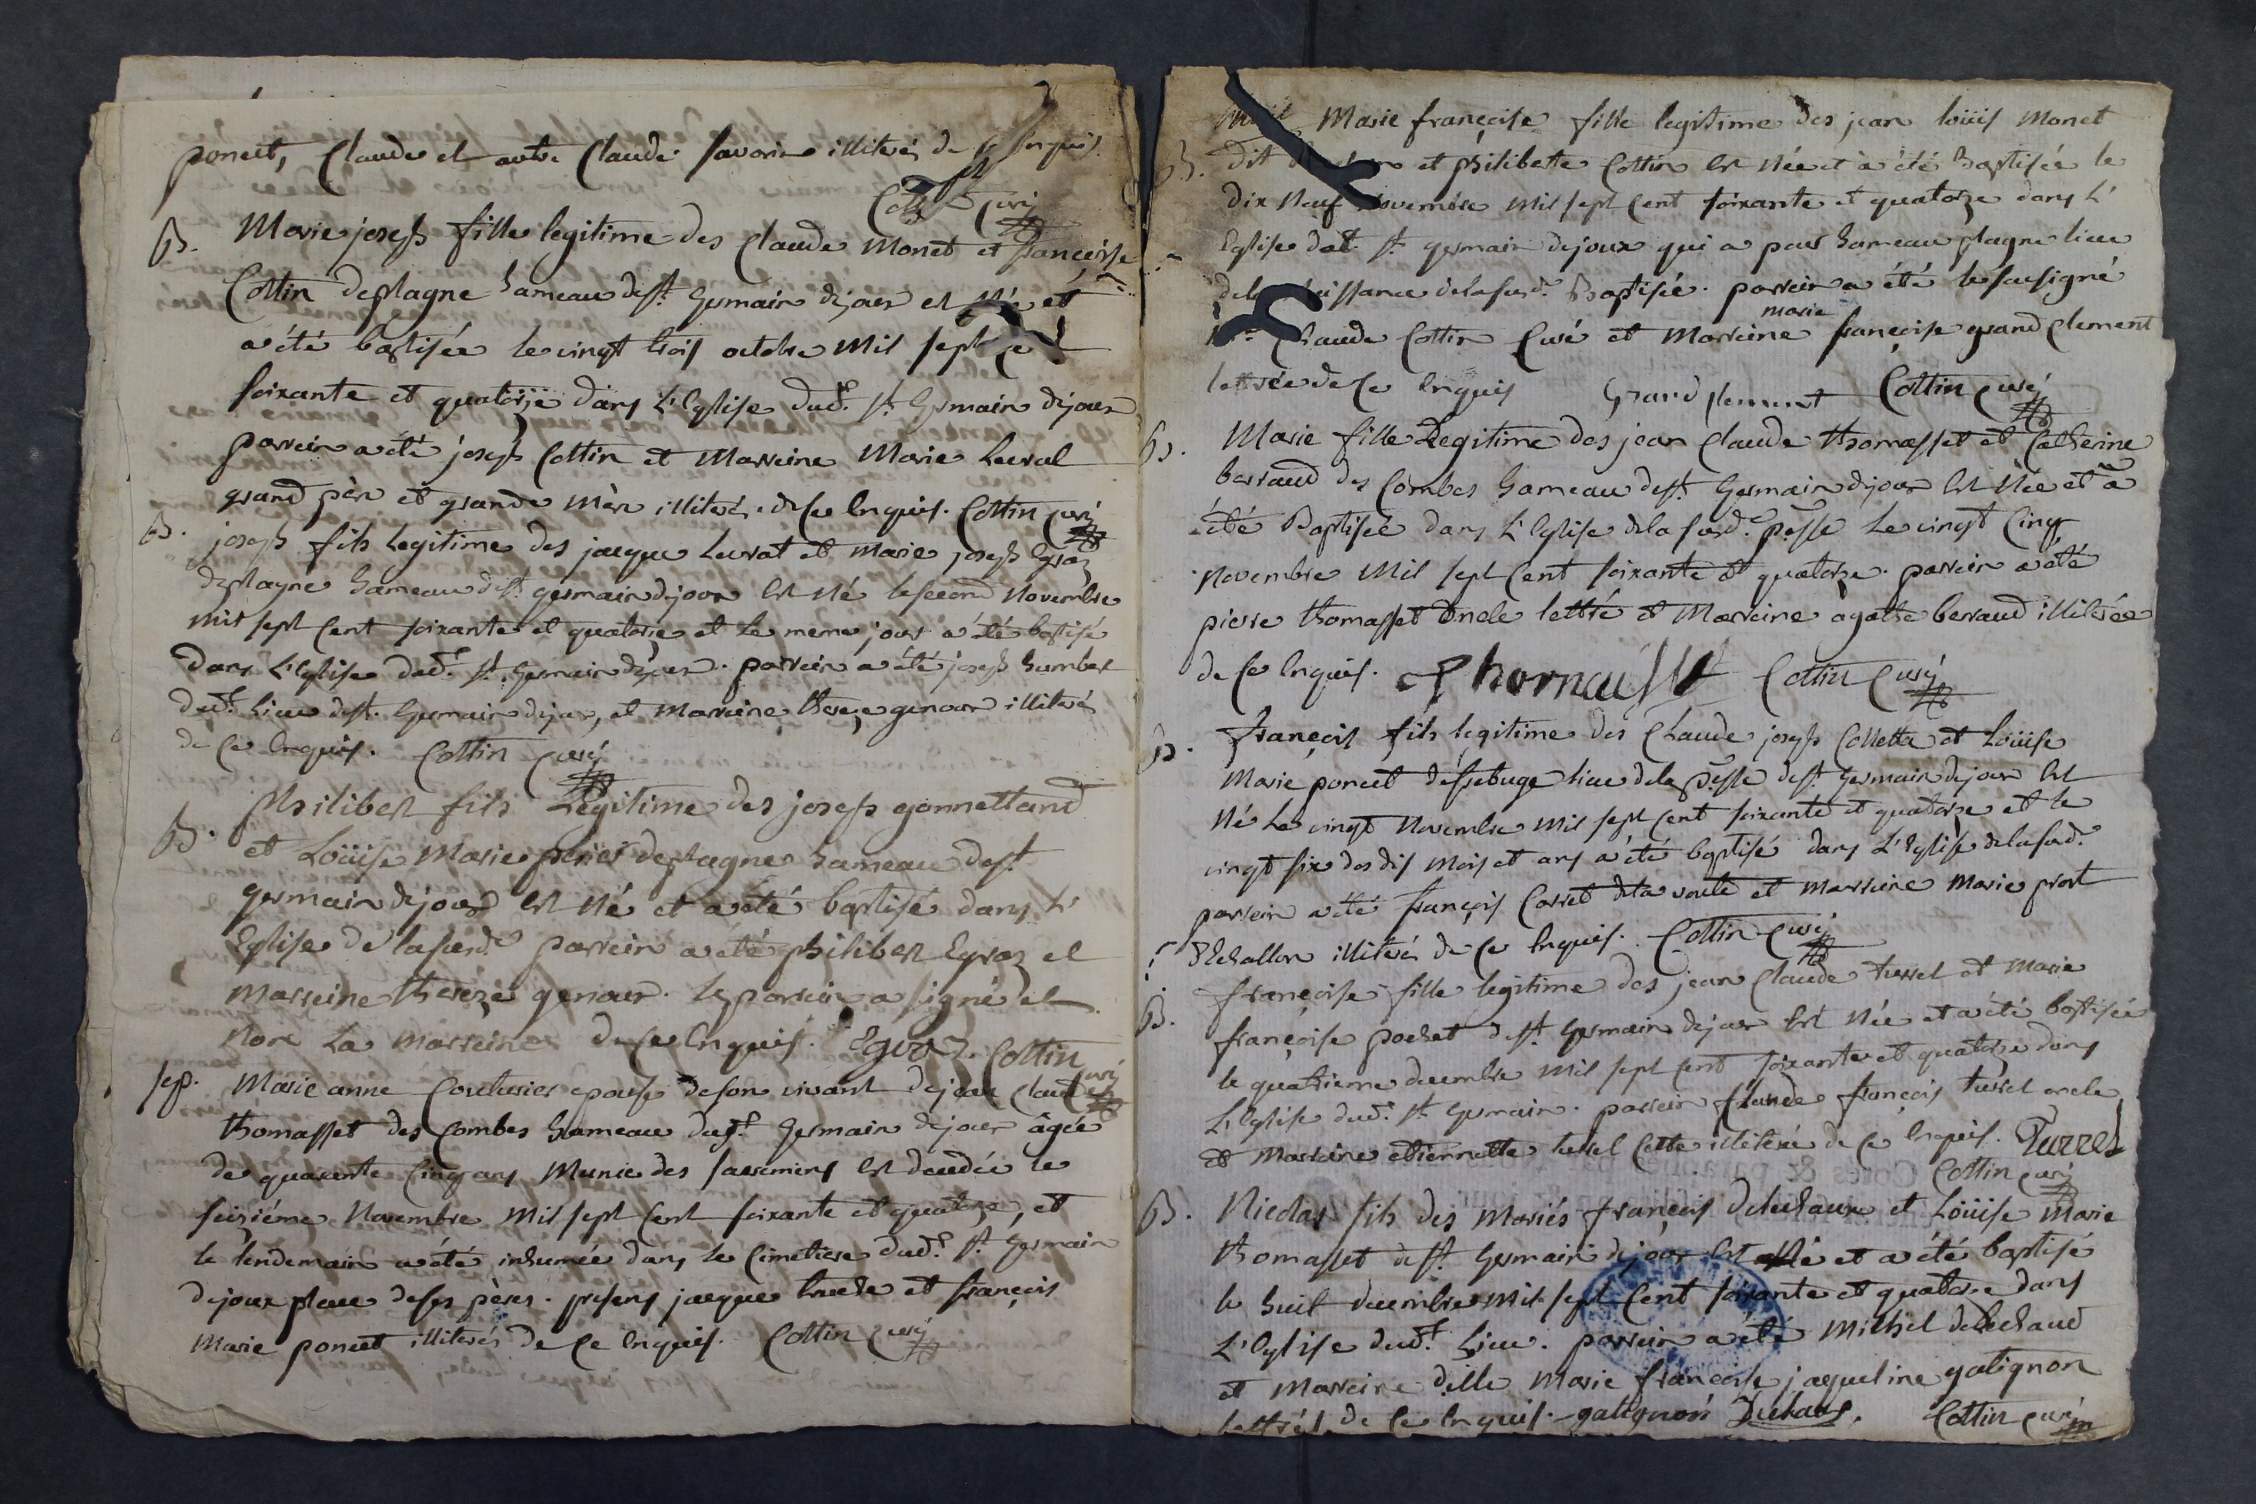 poncet, Claude et autre Claude savarin illiterés de ce enquis.
Cottin curé
B. Marie joseph fille legitime des Claude Monet et françoise
Cottin deplagne hameau de st. Germain dejoux est née et
a été baptisée le vingt trois octobre mil sept cent
soixante et quatorze dans L'Eglise dud. st. Germain dejoux
parrein a été joseph Cottin et Marreine Marie Leurat
grand père et grande mère illiterés de ce enquis. Cottin curé
B. joseph fils legitime des jacque Leurat et Marie joseph Egraz
deplagne hameau de st. germain dejoux est né le second novembre
mil sept cent soixante et quatorze et le meme jour a été baptisé
dans L'Eglise dud. st. Germain dejoux. parrein a été joseph humbert
dud. Lieu de st. Germain dejoux, et marreine thereze genour illiterés
de ce enquis. Cottin curé
B. philibert fils Legitime des joseph gonnettand
et Loüise Marie perier deplagne hameau de st.
germain dejoux est né et a été baptisé dans L'
Eglise de la susd. parrein a été philibert Egraz et
marreine thereze genour. le parrein a signé et
non La marreine de ce enquis. Egraz. Cottin
curé
sep. Marie anne Couturier epouse de son vivant de jean Claude
thomasset des Combes hameau dud. st. Germain dejoux âgée
de quarante cinq ans munie des sacremens est decedée le
seiziéme Novembre mil sept cent soixante et quatorze, et
le lendemain a été inhumée dans le Cimetiere dud. st. Germain
dejoux place de ses pères. presens jacque et françois
Marie poncet illiterés de ce enquis. Cottin curé
Marie françoise fille legitime des jean loüis Monet
B. dit et philiberte Cottin est née et a été Baptisée le
dix neuf Novembre mil sept cent soixante et quatorze dans L'
Eglise dud. st. germain dejoux qui a pour hameau plagne lieu
de la naissance de la susd. Baptisée. parrein a été le sousigné
marie
Claude Cottin Curé et Marreine françoise grand clement
lettrée de ce enquis Grand clement Cottin curé
B. Marie fille Legitime des jean Claude thomasset et Catherine
berraud des Combes hameau de st. Germain dejoux est née et a
été Baptisée dans L'Eglise de la susd. psse Le vingt Cinq
Novembre mil sept cent soixante et quatorze. parrein a été
pierre thomasset oncle lettré et Marreine agathe berraud illiterée
de ce enquis. Thomasset Cottin curé
B. françois fils legitime des Claude joseph Collette et Loüise
Marie poncet lieu de la psse de st. Germain dejoux est
Né Le vingt Novembre mil sept cent soixante et quatorze et le
vingt six des dis mois et ans a été baptisé dans L'Eglise de la susd.
parrein a été françois Carret et marreine Marie prost
d'Echallon illiterés de ce enquis. Cottin curé
B. françoise fille legitime des jean Claude turrel et Marie
françoise pochet de st. Germain dejoux est née et a été baptisée
le quatrieme decembre mil sept cent soixante et quatorze dans
L'Eglise dud. st. Germain. parrein Claude françois turrel oncle
et marreine etiennette turrel cette illiterée de ce enquis. Turrel
Cottin curé
B. Nicolas fils des Mariés françois et Loüise Marie
thomasset de st. Germain dejoux est né et a été baptisé
le huit decembre mil sept cent soixante et quatorze dans
L'Eglise dud. Lieu. parrein a été Michel delechaud
et marreine d.lle Marie françoise jacqueline galignon
lettrés de ce enquis. galignon Cottin curé